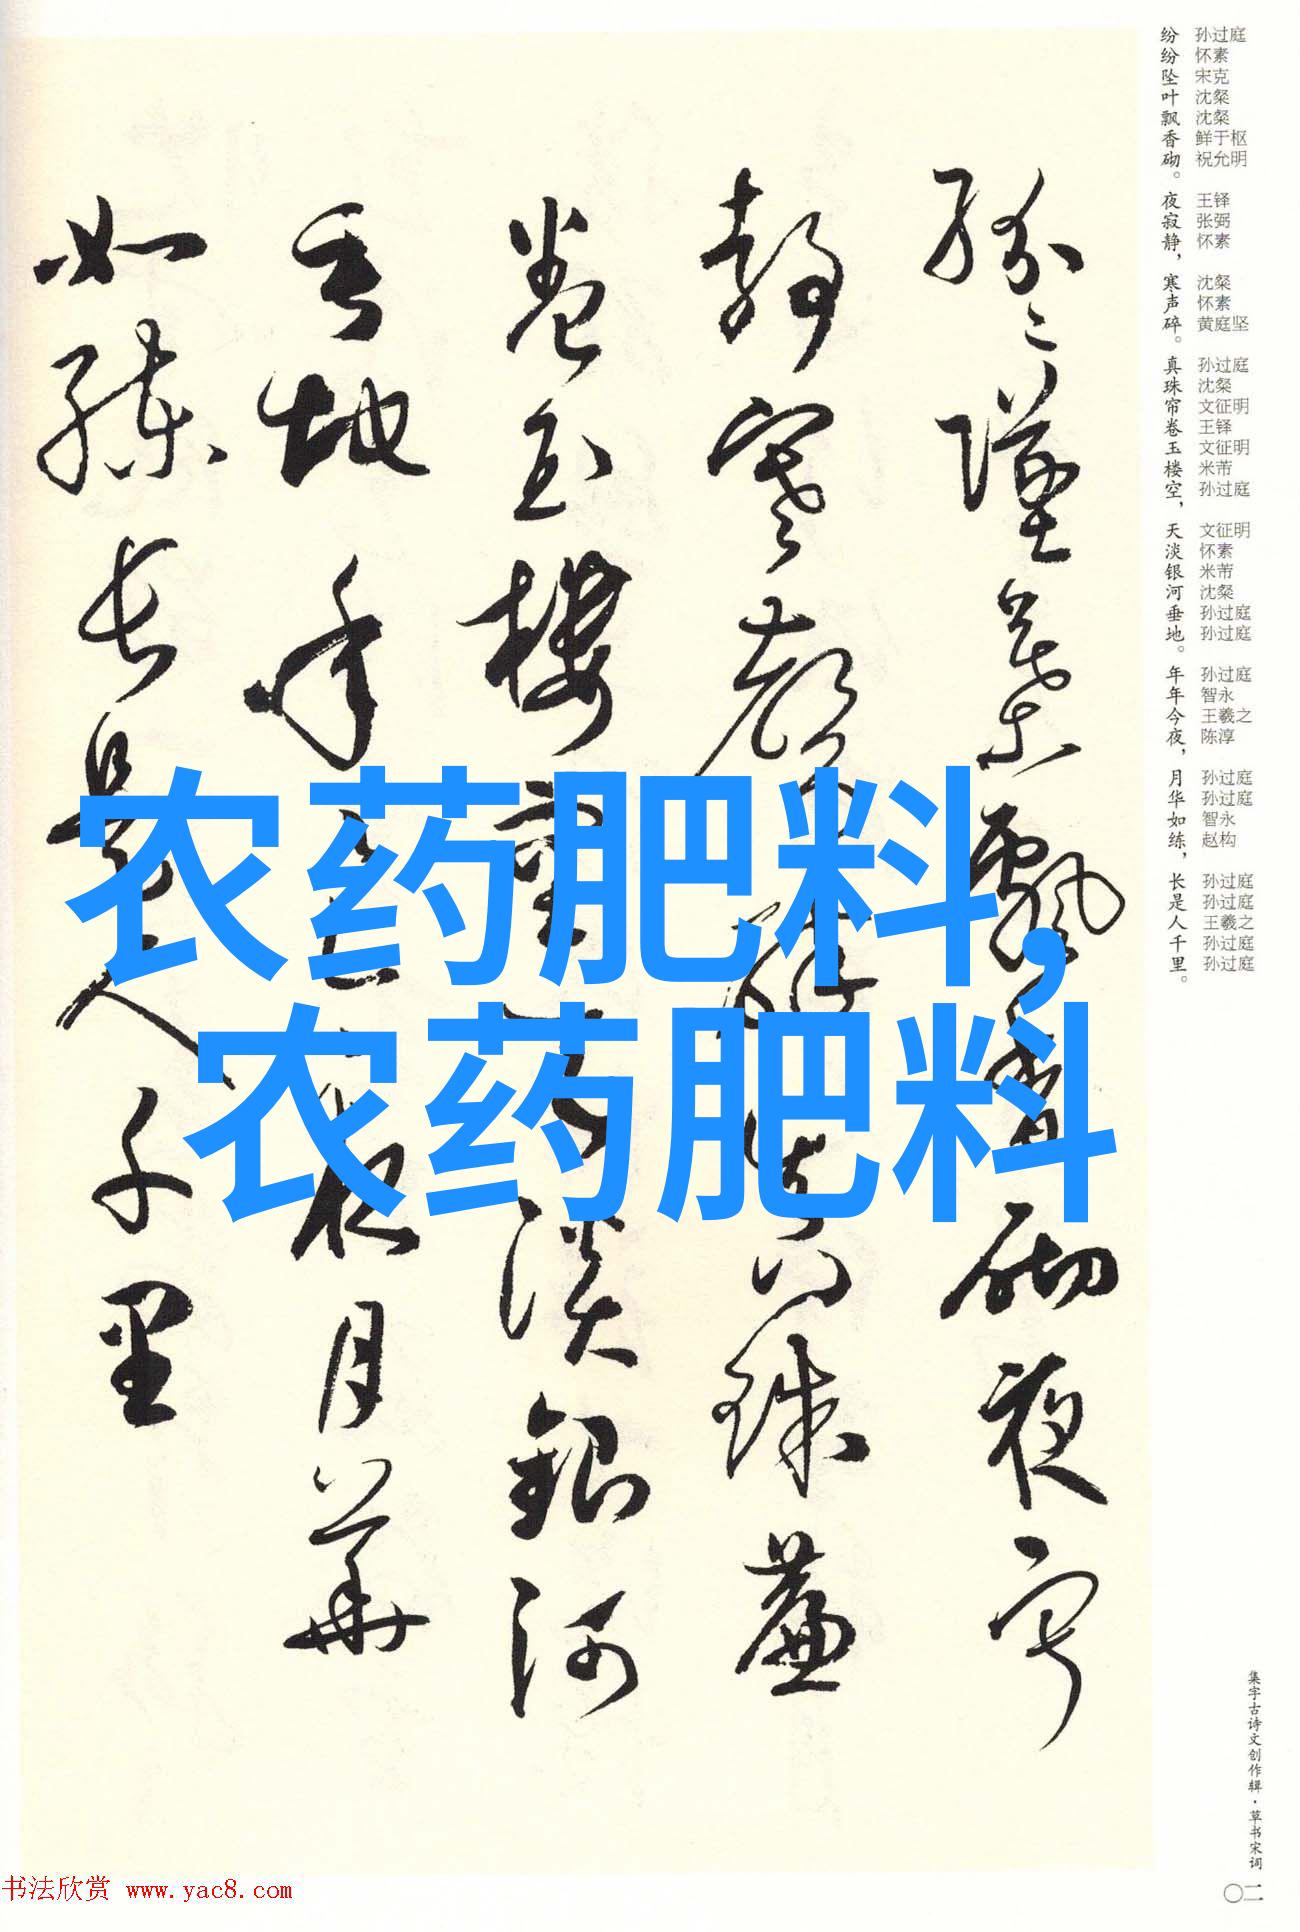 纷纷坠叶飘香砌。夜寂静，寒声碎。真珠帘卷玉楼空，天淡银河垂地。年年今夜，月华如练，长是人千里。
孙过庭 怀素 宋克 沈粲 沈粲 鲜于枢 祝允明 王铎 张弼 怀素 沈粲 怀素 黄庭坚 孙过庭 沈粲 文征明 王铎 文征明 米芾 孙过庭 文征明 怀素 米芾 沈粲 孙过庭 孙过庭 孙过庭 智永 王羲之 陈淳 孙过庭 孙过庭 智永 赵构 孙过庭 孙过庭 王羲之 孙过庭 孙过庭
纷纷坠叶飘香砌夜寂
静寒声碎真珠帘
卷玉楼空天淡银河
垂地年年今夜月华
如练长是人千里
农药肥料,
农药肥料
集字古诗文创作辑·草书宋词
〇二
书法欣赏 www.yac8.com